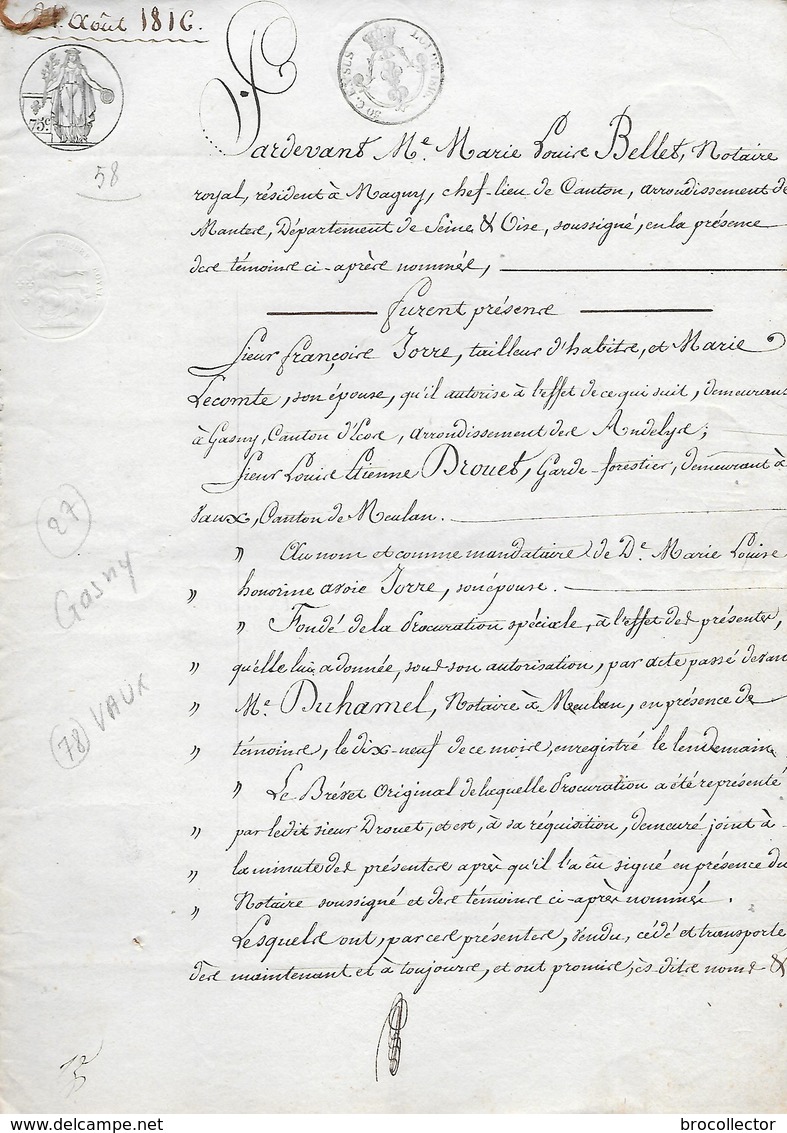 21. Août 1816.
75c.
58
Pardevant Me. Marie Louis Bellet, Notaire
royal, résident à Magny, chef-lieu de Canton, arrondissement de
Mantes, Département de Seine & Oise, soussigné, en la présence
des témoins ci-après nommés,
furent présens
Sieur françois Jorre, tailleur d'habits, et Marie
Lecomte, son épouse, qu'il autorise à l'effet de ce qui suit, demeurans
à Gasny, Canton d'Ecos, arrondissement des Andelys;
Sieur Louis Etienne Drouet, Garde-forestier, demeurant à
Vaux, Canton de Meulan.
27
Gasny
78 VAUX
" Au nom et comme mandataire de De. Marie Louise
" honorine avoie Jorre, son épouse.
" Fondé de la Procuration spéciale, à l'effet des présentes,
" qu'elle lui a donnée, sous son autorisation, par acte passé devan
" Me. Duhamel, Notaire à Meulan, en présence de
" témoins, le dix-neuf de ce mois, enregistré le lendemain
" Le Brévet Original de laquelle Procuration a été représenté
" par ledit sieur Drouet, et est, à sa réquisition, demeuré joint à
" la minute des présentes après qu'il l'a eu signé en présence du
" Notaire soussigné et des témoins ci-après nommés.
Lesquels ont, par ces présentes, vendu, cédé et transporté
dès maintenant et à toujours, et ont promis, ès dits noms &
delcampe.net
brocollector